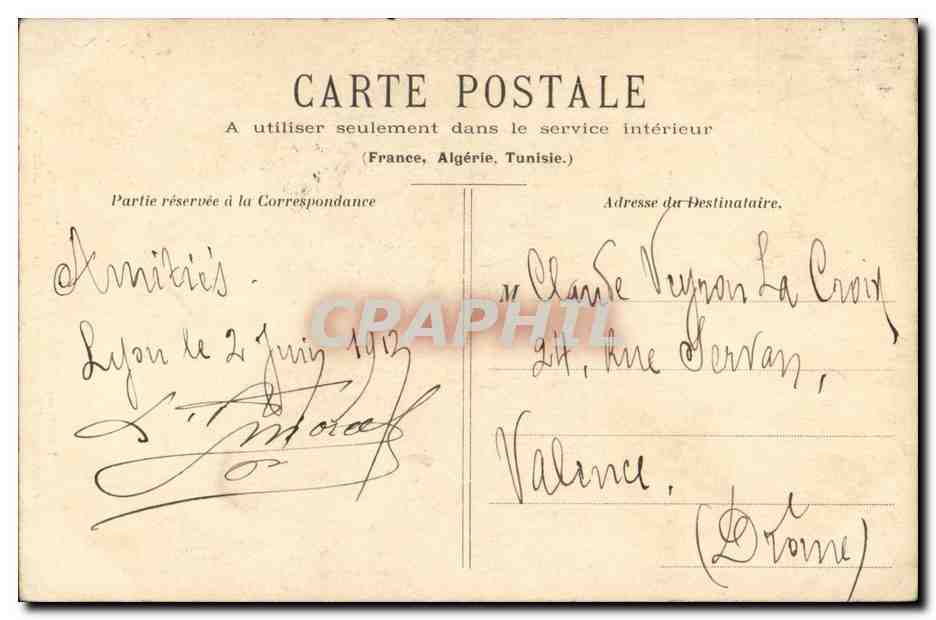 CARTE POSTALE
A utiliser seulement dans le service intérieur
(France, Algérie, Tunisie.)
Partie réservée à la Correspondance
Adresse du Destinataire.
Amitiés.
Lyon le 2 Juin 1912
M Claude Veyron La Croix
24, Rue Servan,
Valence.
(Drôme)
CPRAPHIL